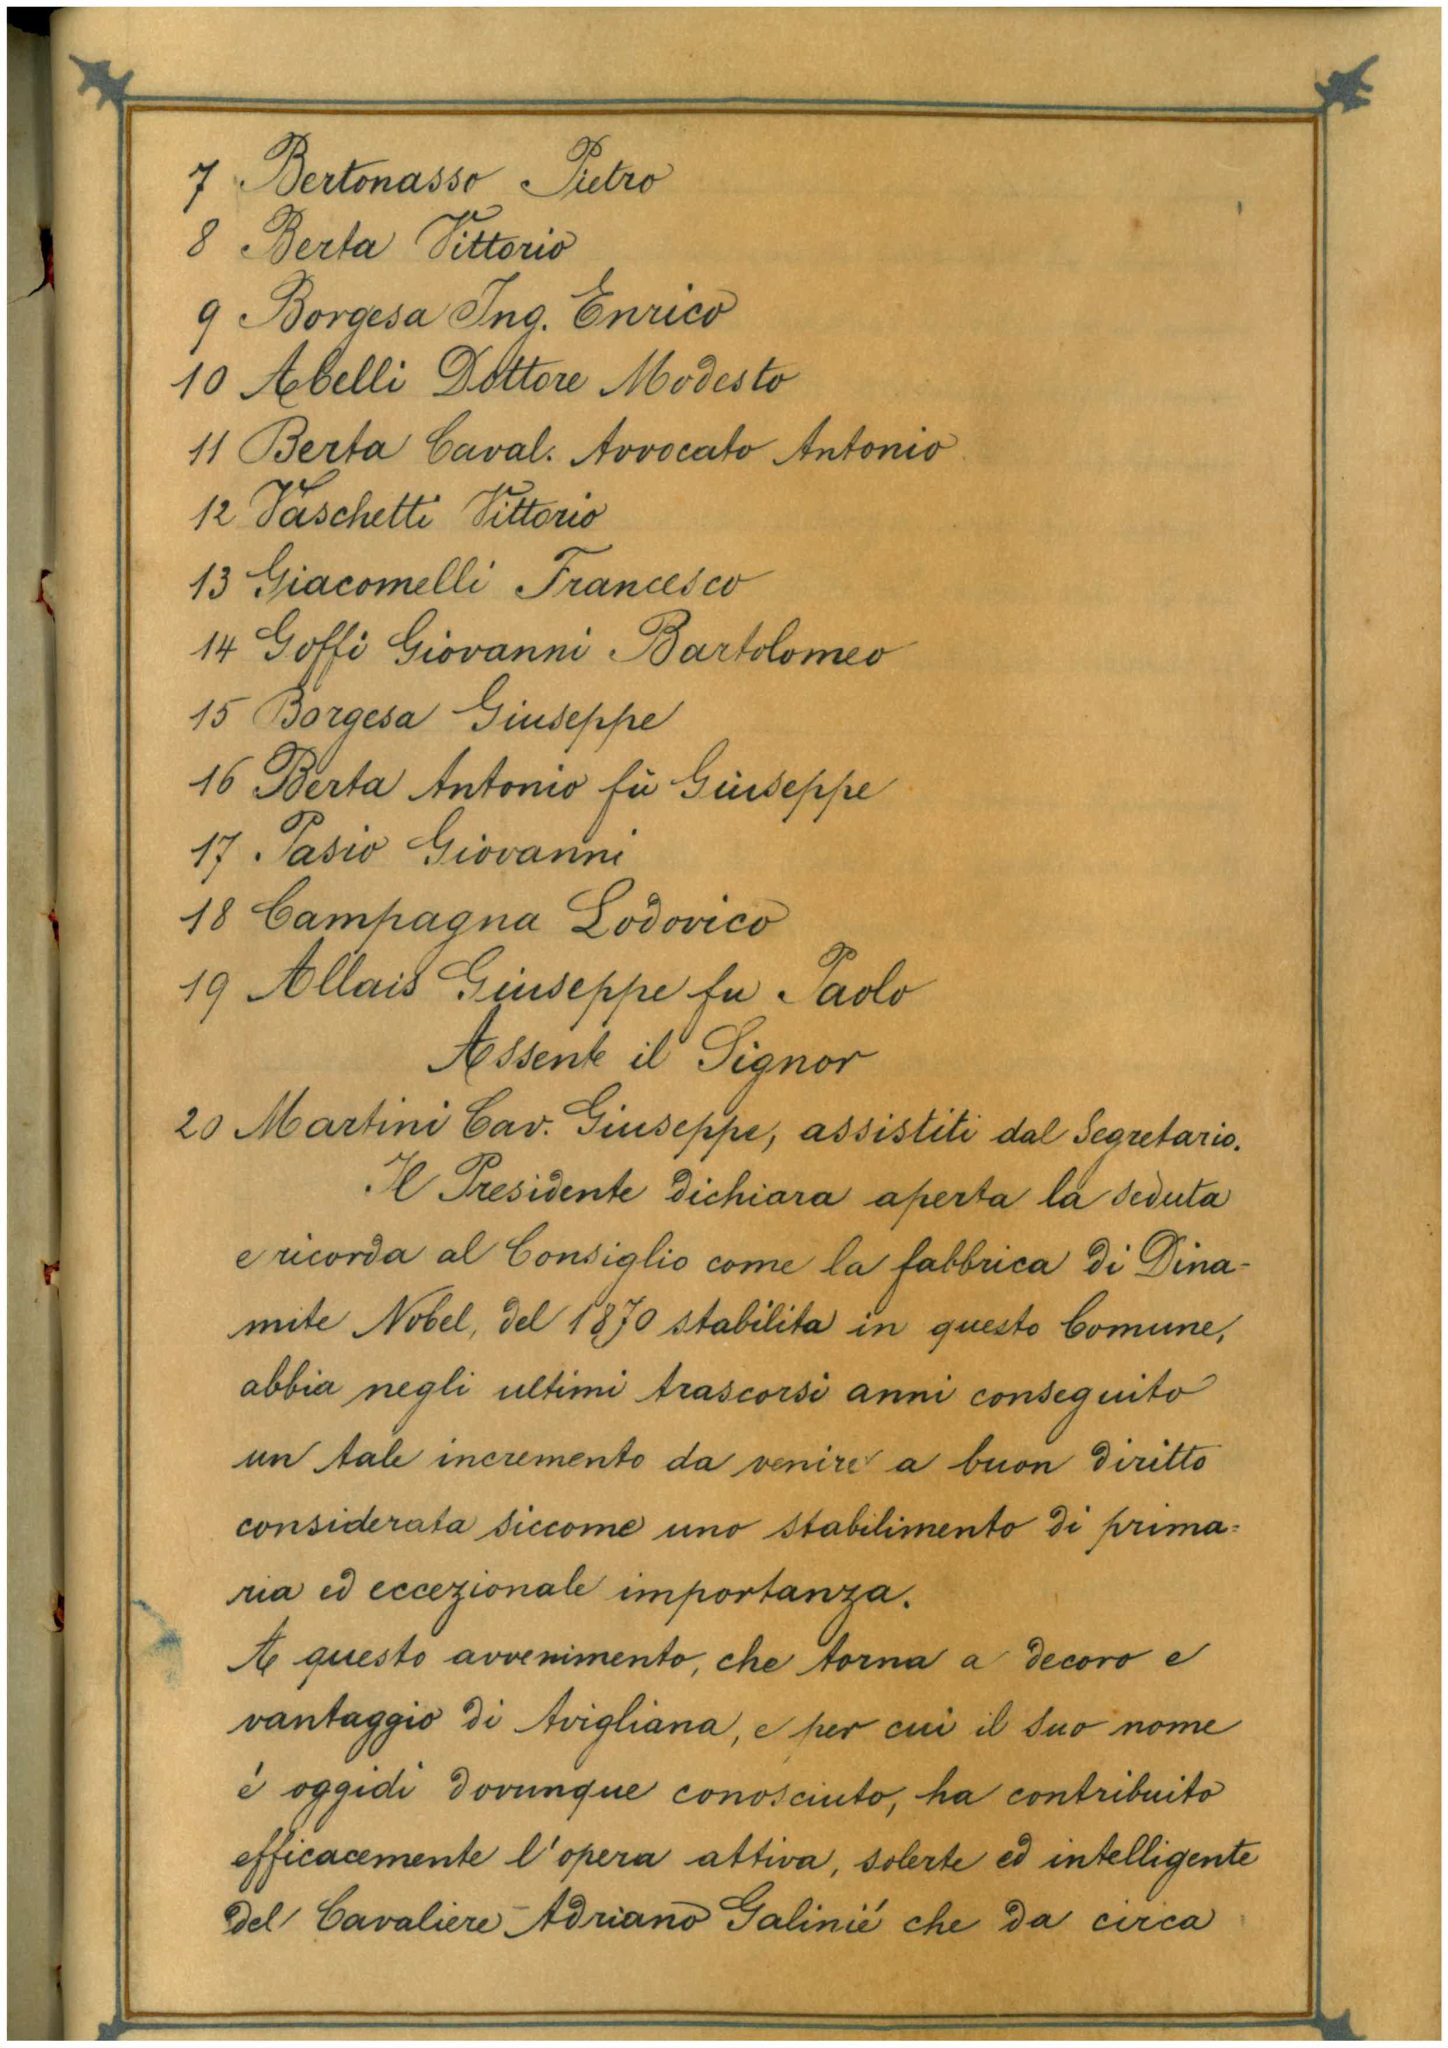 7 Bertonasso Pietro
8 Berta Vittorio
9 Borgesa Ing. Enrico
10 Abelli Dottore Modesto
11 Berta Caval. Avvocato Antonio
12 Vaschetti Vittorio
13 Giacomelli Francesco
14 Goffi Giovanni Bartolomeo
15 Borgesa Giuseppe
16 Berta Antonio fù Giuseppe
17 Pasio Giovanni
18 Campagna Lodovico
19 Allais Giuseppe fu Paolo
Assente il Signor
20 Martini Cav. Giuseppe, assistiti dal Segretario.
Il Presidente dichiara aperta la seduta
e ricorda al Consiglio come la fabbrica di Dina-
mite Nobel, del 1870 stabilita in questo Comune,
abbia negli ultimi trascorsi anni conseguito
un tale incremento da venire a buon diritto
considerata siccome uno stabilimento di prima=
ria ed eccezionale importanza.
A questo avvenimento, che torna a decoro e
vantaggio di Avigliana, e per cui il suo nome
è oggidì dovunque conosciuto, ha contribuito
efficacemente l'opera attiva, solerte ed intelligente
del Cavaliere Adriano Galinié che da circa